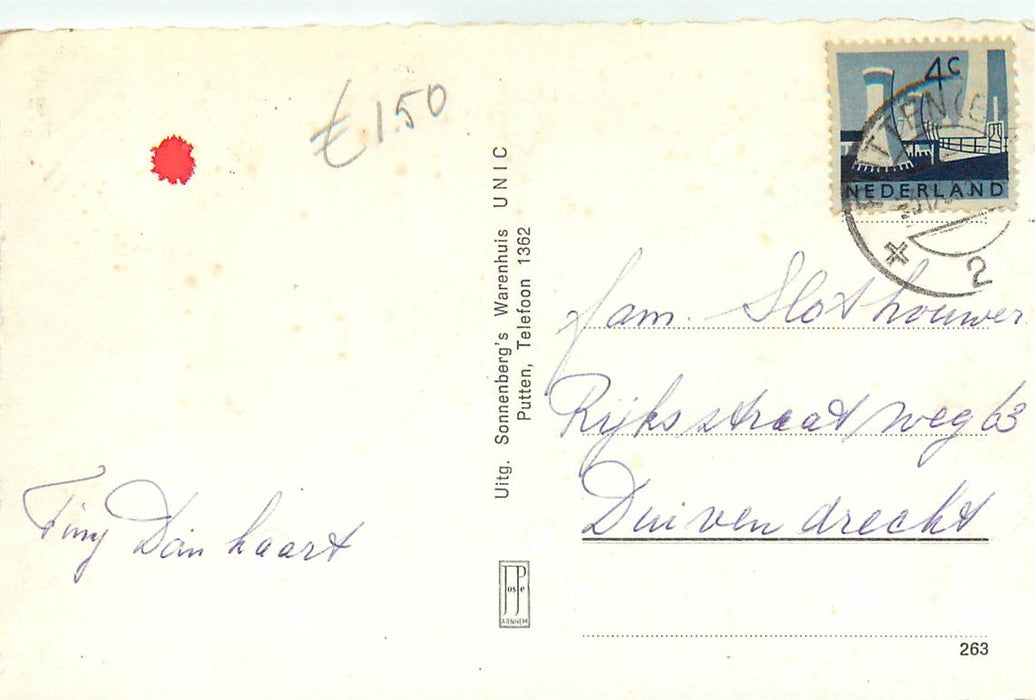 € 1.50
4c
NEDERLAND
2
Uitg. Sonnenberg's Warenhuis UNIC
Putten, Telefoon 1362
fam. Slothouwer
Rijksstraatweg 63
Duivendrecht
Tiny Dan haart
Poste
ARNHEM
263